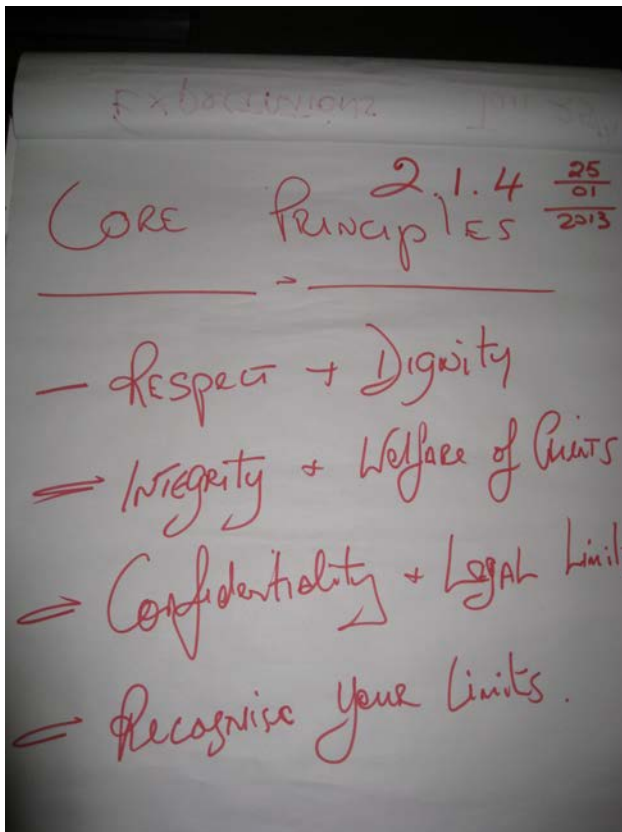 Expectations
2.1.4 25
01
2013
CORE PRINCIPLES
- RESPECT + Dignity
= INTEGRITY + Welfare of Clients
= Confidentiality + LEgAL Limit
= Recognise your Limits.